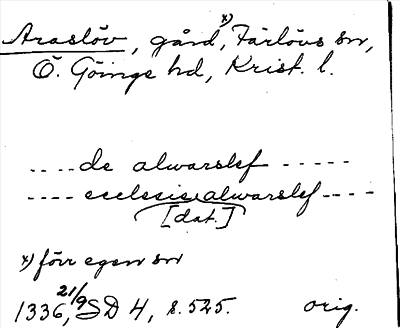 Araslöv, gård, x) Färlövs sn,
Ö. Göinge hd, Krist. l.
.... de alwarslef .....
.... ecclesie alwarslef ....
[dat.]
x) förr egen sn
1336, 21/9 SD 4, s. 525. orig.